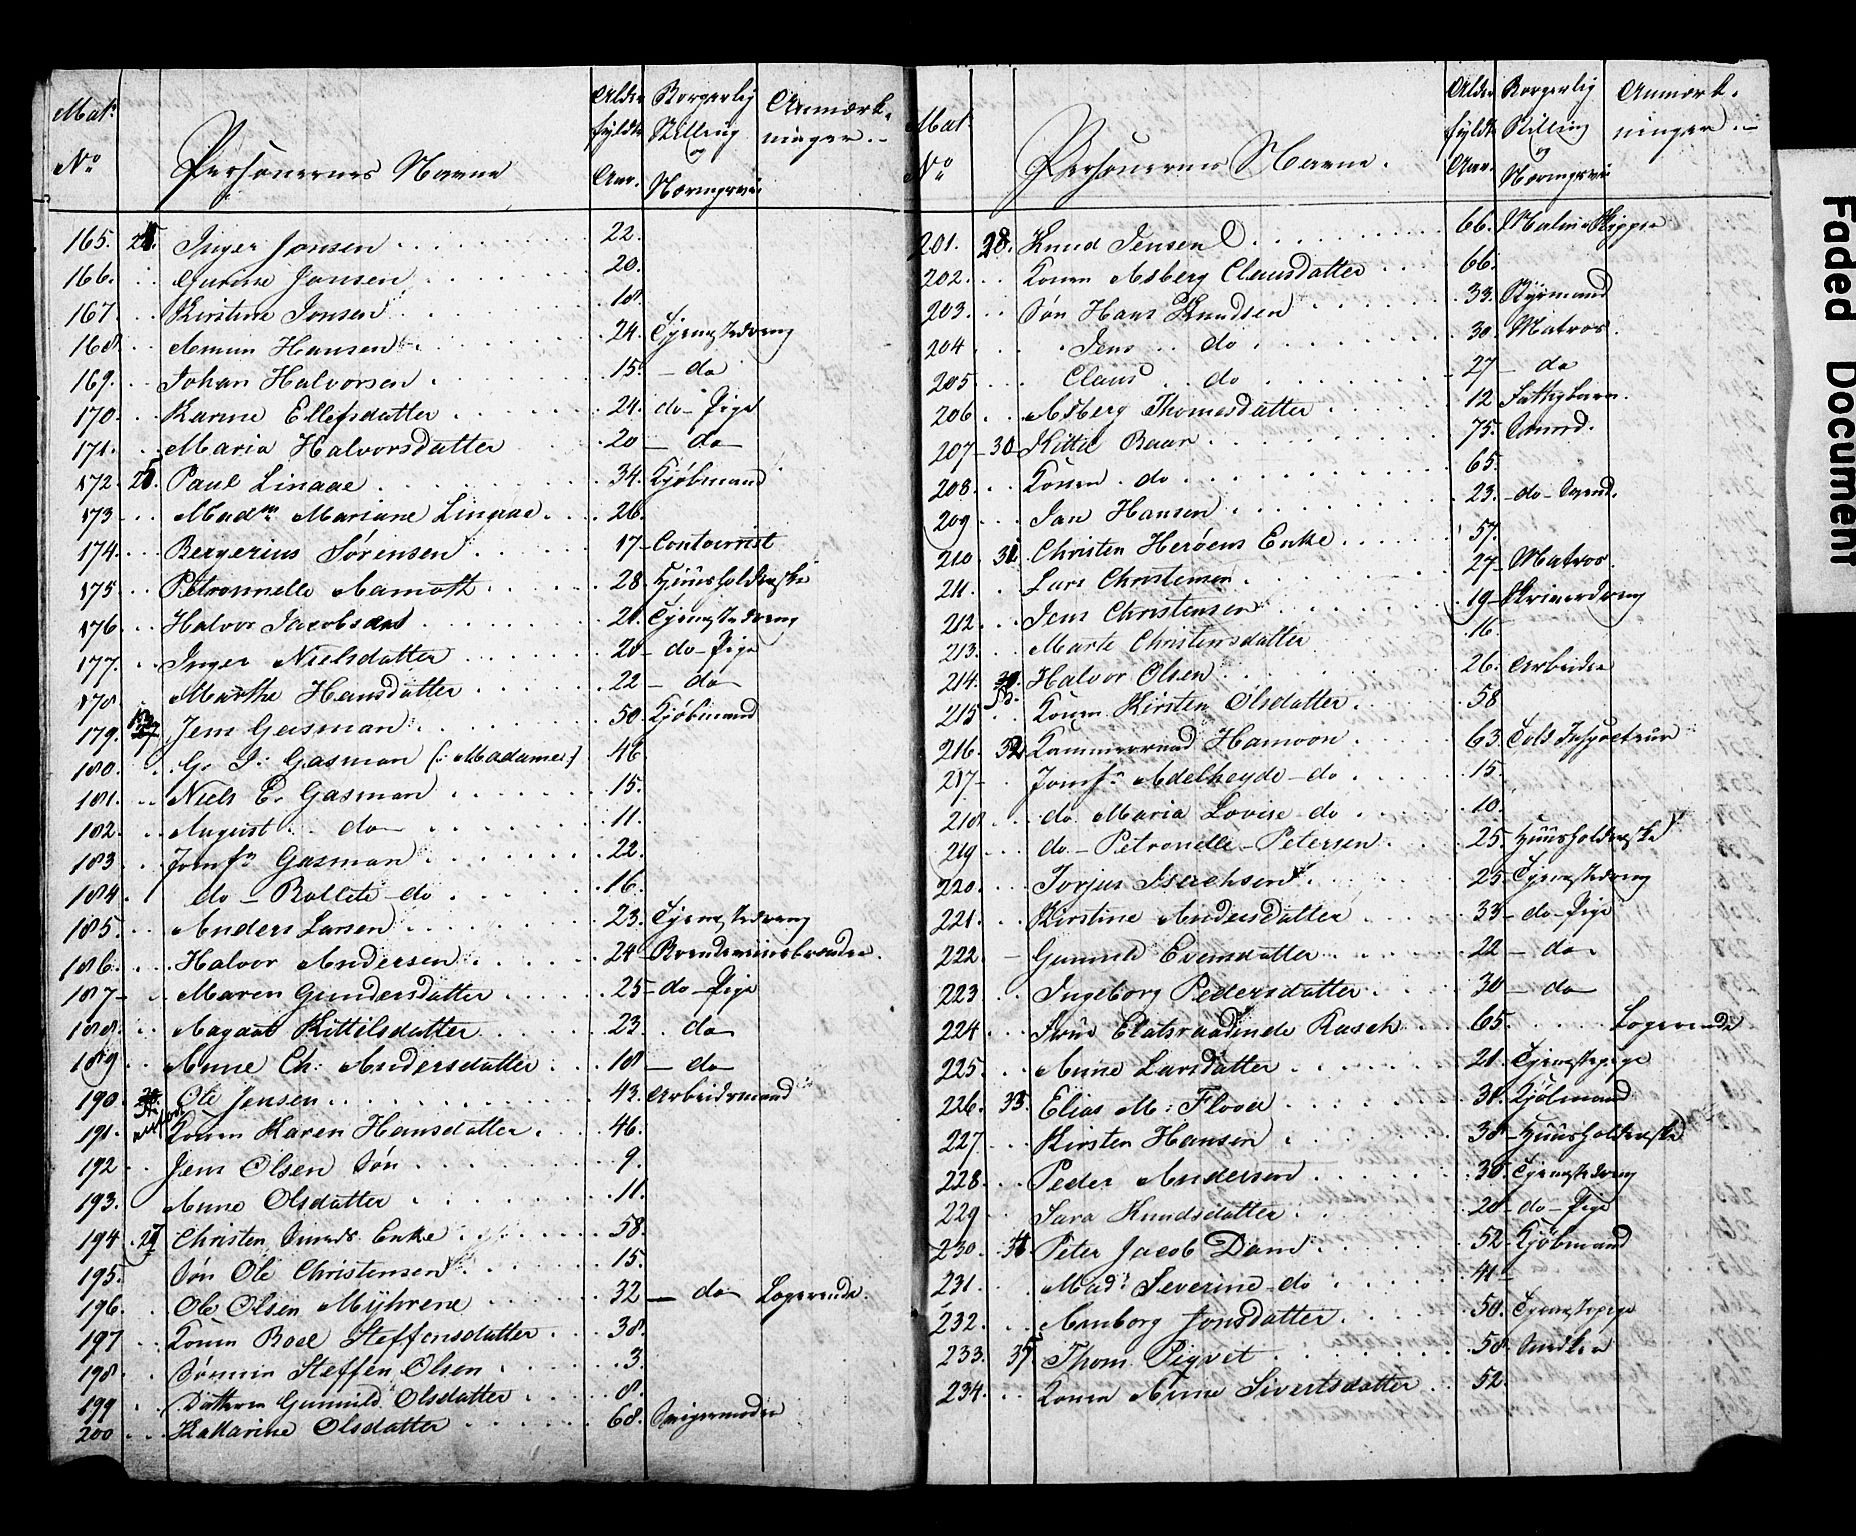 Mat: No Personernes Navne Alder fyldte Aar. Borgerlig Stilling og Næringsvei Anmærkninger.
165. Inger Jonsen 22.
166. Gurine Jonsen 20.
167. Kirstine Jonsen 18.
168. Amun Hansen 24. Tjenestedreng
169. Johan Halvorsen 15. - do
170. Karine Ellefsdatter 24. do - Pige
171. Maria Halvorsdatter 20 - do -
172. Paul Linaae 34. Kjøbmand
173 Madm Mariane Linaae 26.
174. Bergerius Sørensen 17 - Contoirist
175 Petronnelle Aamoth 28. Huusholderske
176. Halvor Jacobsen 21. Tjenestedreng
177. Inger Nielsdatter 20 - do - Pige
178. Marthe Hansdatter 22 - do
179. Jens Gasman 50. Kjøbmand
180. G. J: Gasman (: Madame:)
181. Niels E. Gasman 15.
182. August do 11.
183 Jomfr Gasman 22.
184. do - Bollete do 16.
185. Anders Larsen 23. Tjenestedreng
186. Halvor Andersen 24
187 - Maren Gundersdatter 25 - do - Pige
188. Aagaat Kittilsdatter 23. do
189. Anne Ch: Andersdatter 18 - do -
190. Ole Jensen 43. Arbeidsmand
191. Konen Karen Hansdatter 46.
192 Jens Olsen Søn 9.
193. Anne Olsdatter 11.
194. 27 Christen Smeds Enke 58.
195. Søn Ole Christensen 15.
196. Ole Olsen Myhrene 32 - do Logerende.
197 Konen Boel Steffensdatter 38.
198. Sønnen Steffen Olsen 3.
199 Datteren Gunnild Olsdatter 8.
200 Katharine Olsdatter 68. Svigermoder
Mat: No Personernes Navne. Alder fyldte Aar. Borgerlig Stilling og Næringsvei Anmærkninger.
201. 28. Knud Jensen 66.
202. Konen Asberg Clausdatter 66.
203. Søn Hans Knudsen 33. Styrmand
204 Jens do 30. Matros.
205 Claus do 27 - do
206. Asberg Thomesdatter 12
207 - 30 - Kittil Baar 75. Smed.
208. Konen do 65.
209 Jan Hansen 23. - do - Svend.
210 31 Christen Herøens Enke 57.
211. Lars Christensen 27 - Matros.
212. Jens Christensen 19 - Skriverdreng
213. Marte Christensdatter 16.
214. Halvor Olsen 26. Arbeider
215 Konen Kirsten Olsdatter 58
216. 32 Kammerraad Hamoon 63. Told Inspecteur
217 - Jomfr Adelheyde - do 15.
218 do Maria Lovise do 10.
219 do - Petronelle - Petersen 25. Huusholderske
220. Torjus Isachsen 25 Tjenestedreng
221. Kirstine Andersdatter 33 - do - Pige
222. Gunnild Evensdatter 22 - do
223 Ingeborg Pedersdatter 30 - do
224 Frue Etatsraadinde Rasch 65. Logerende
225. Anne Larsdatter 21. Tjenestepige
226. 33. Elias M: Flood 31. Kjøbmand
227. Kirsten Hansen 38 - Huusholderske
228. Peder Andersen 36. Tjenestedreng
229 Sara Knudsdatter 20 - do - Pige
230. Peter Jacob Dam 52 - Kjøbmand
231 Mad: Severine do 41 -
232. Anborg Jonsdatter 50. Tjenestepige
233. 35 Thom Pigvet 58
234. Konen Anne Sivertsdatter 52.
Faded Document